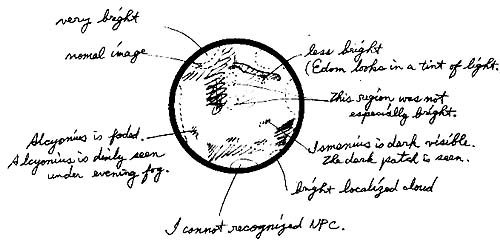 very bright
nomal image
less bright
(Edom looks in a tint of light.
This region was not
especially bright.
Alcyonius is faded.
Alcyonius is dimly seen
under evening fog.
Ismenius is dark visible.
The dark patch is seen.
bright localized cloud
I connot recognized NPC.